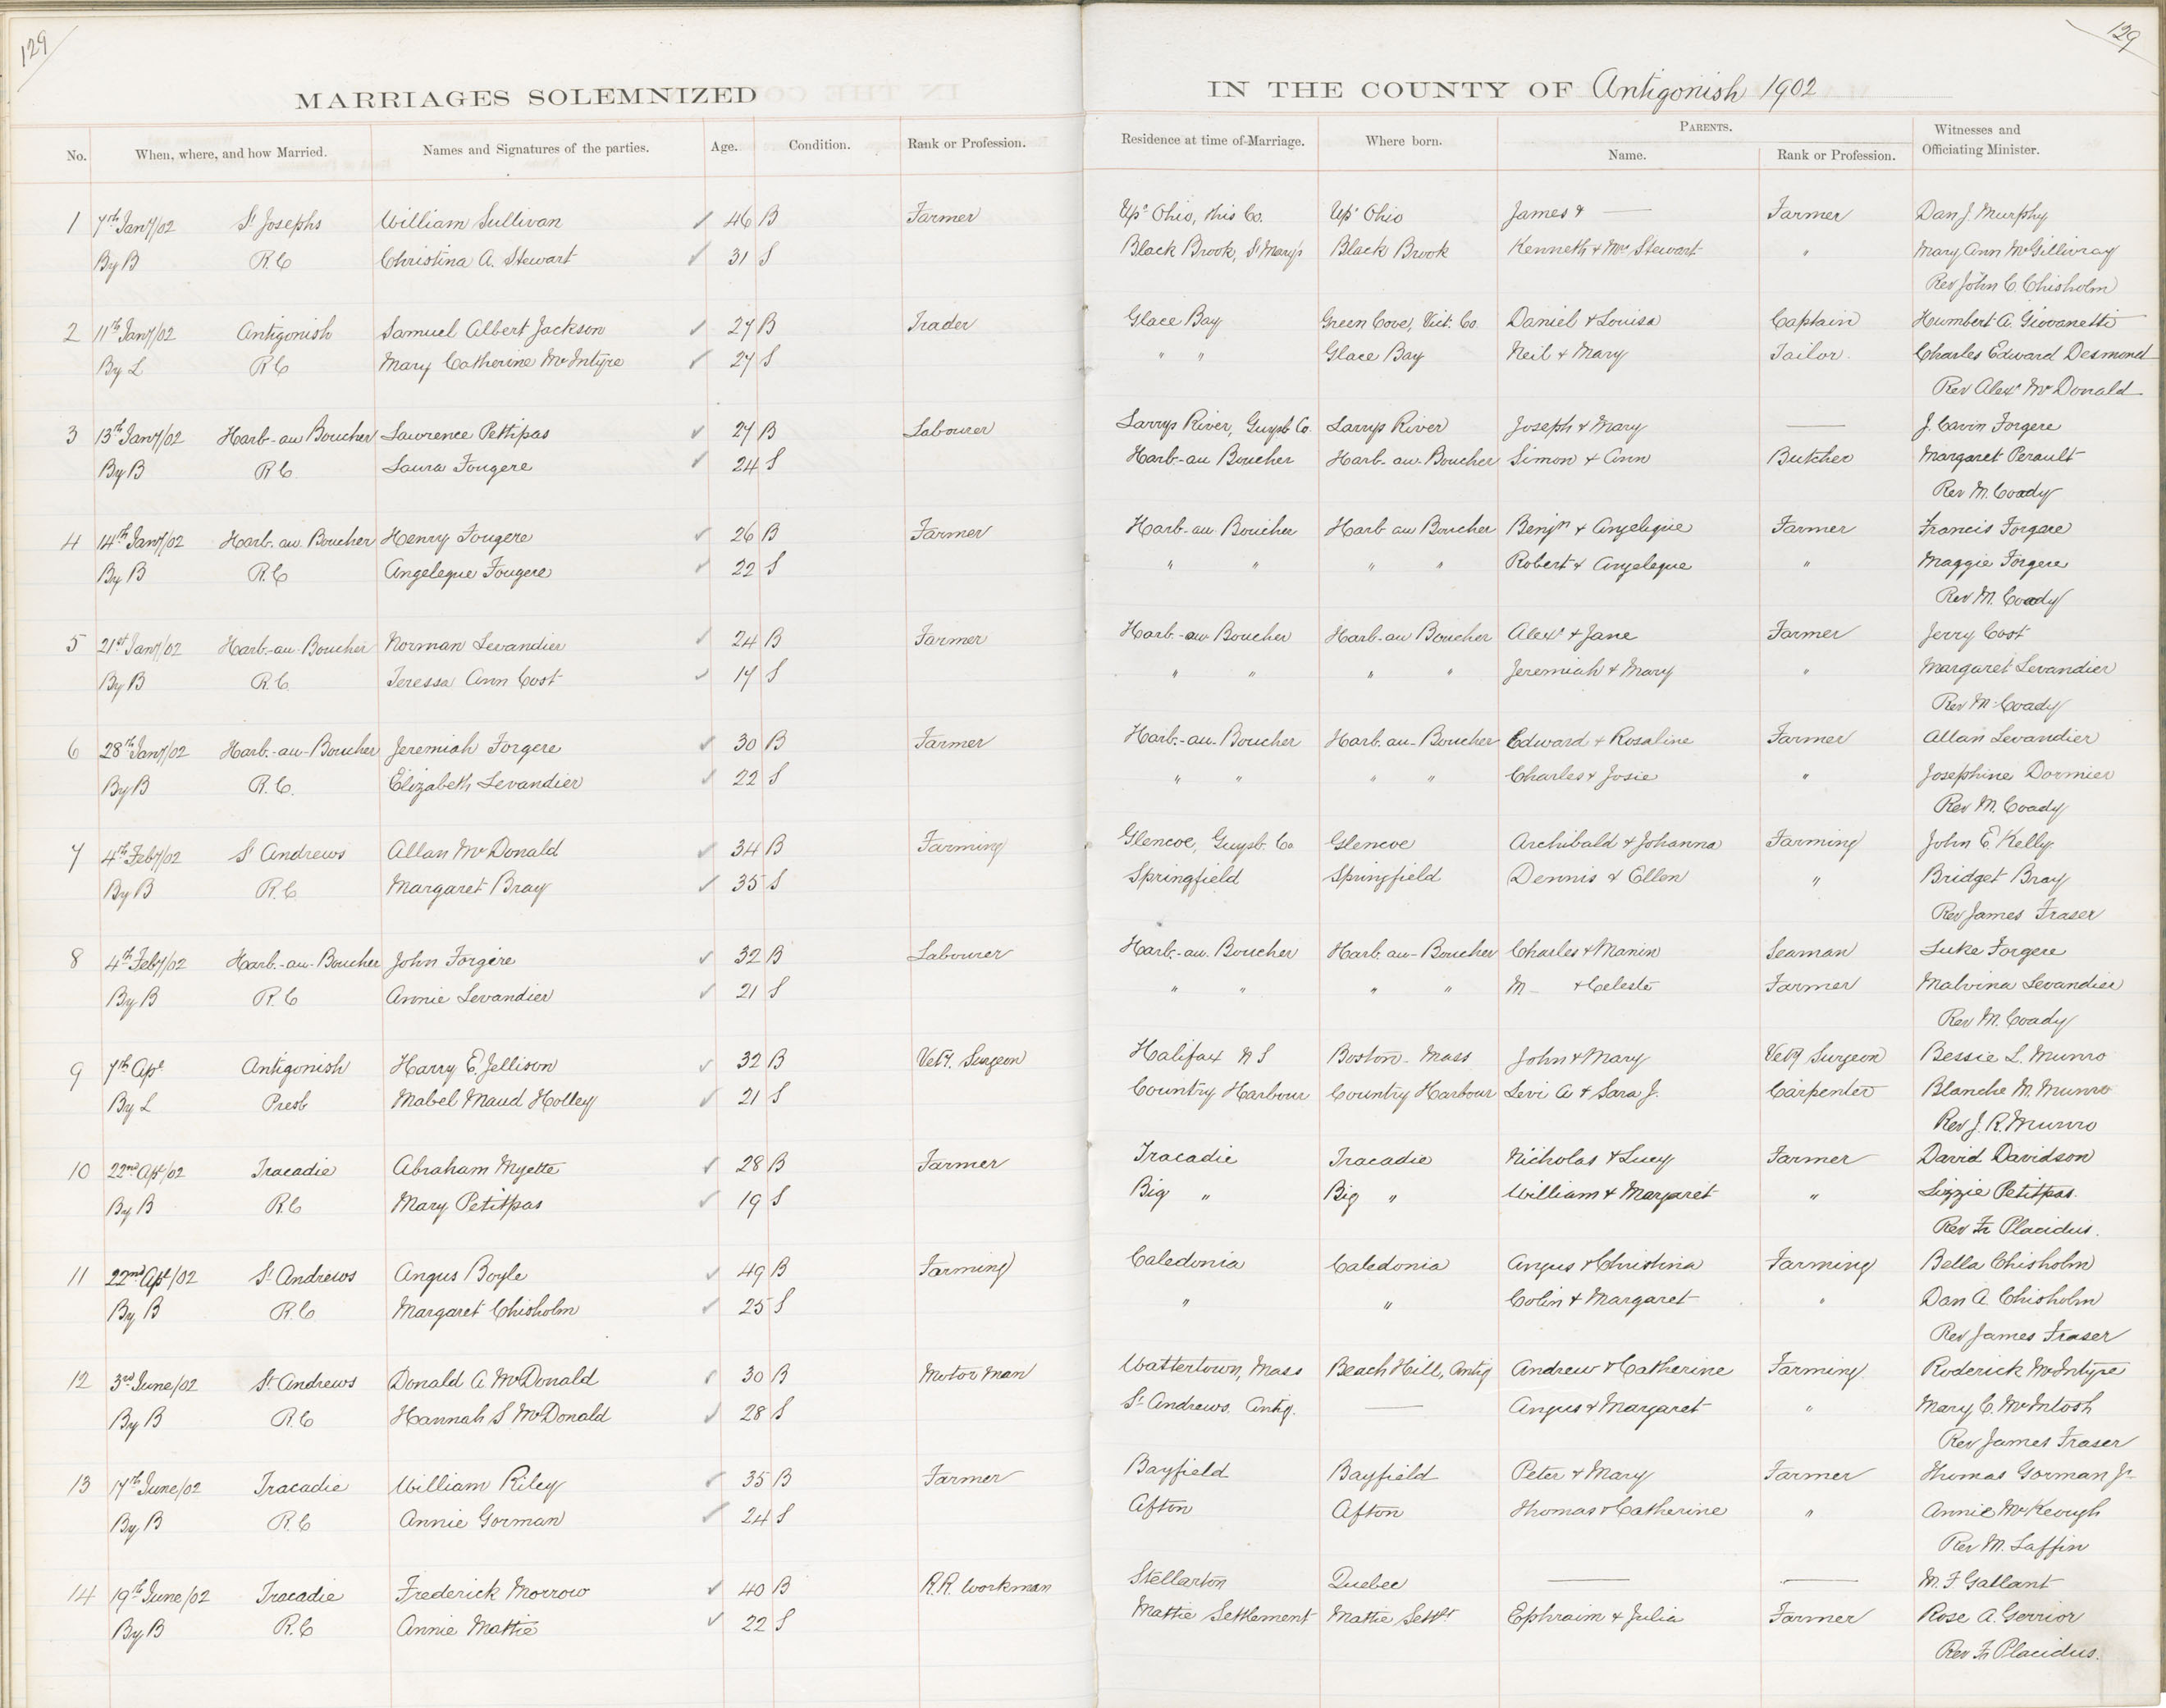 129
129
MARRIAGES SOLEMNIZED IN THE COUNTY OF Antigonish 1902
No. When, where, and how Married. Names and Signatures of the parties. Age. Condition. Rank or Profession. Residence at time of Marriage. Where born. PARENTS. Name. Rank or Profession. Witnesses and Officiating Minister.
1 7th Jany/02 St Josephs William Sullivan 46 B Farmer Upr Ohio, this Co. Upr Ohio James & — Farmer Dan J. Murphy
By B R.C Christina A. Stewart 31 S Black Brook, St Marys Black Brook Kenneth & Mrs Stewart " Mary Ann McGillivray
Rev John C. Chisholm
2 11th Jany/02 Antigonish Samuel Albert Jackson 27 B Trader Glace Bay Green Cove, Vict. Co Daniel & Louisa Captain Humbert A. Giovanetti
By L R C Mary Catherine McIntyre 27 S " " Glace Bay Neil & Mary Tailor Charles Edward Desmond
Rev Alexr McDonald
3 13th Jany/02 Harb-au Boucher Lawrence Pettipas 27 B Labourer Larrys River, Guysb Co. Larrys River Joseph & Mary — J. Cavin Forgere
By B R C. Laura Fougere 24 S Harb-au Boucher Harb-au-Boucher Simon & Ann Butcher Margaret Perault
Rev M. Coady
4 14th Jany/02 Harb. au. Boucher Henry Fougere 26 B Farmer Harb-au Boucher Harb au Boucher Benjn & Angeleque Farmer Francis Forgere
By B R.C Angeleque Fougere 22 S " " " " Robert & Angeleque " Maggie Forgere
Rev M. Coady
5 21st Jany/02 Harb.-au-Boucher Norman Levandier 24 B Farmer Harb.-au Boucher Harb-au Boucher Alexr & Jane Farmer Jerry Cost
By B R.C. Teressa Ann Cost 17 S " " " " Jeremiah & Mary " Margaret Levandier
Rev M. Coady
6 28th Jany/02 Harb.-au-Boucher Jeremiah Forgere 30 B Farmer Harb.-au-Boucher Harb. au-Boucher Edward & Rosaline Farmer Allan Levandier
By B R.C. Elizabeth Levandier 22 S " " " " Charles & Josie " Josephine Dormier
Rev M. Coady
7 4th Feby/02 St Andrews Allan McDonald 34 B Farming Glencoe, Guysb. Co Glencoe Archibald & Johanna Farming John E Kelly
By B R.C. Margaret Bray 35 S Springfield Springfield Dennis & Ellen " Bridget Bray
Rev James Fraser
8 4th Feby/02 Harb.-au-Boucher John Forgere 32 B Labourer Harb.-au. Boucher Harb. au-Boucher Charles & Manin Seaman Luke Forgere
By B R.C Annie Levandier 21 S " " " " M— & Celeste Farmer Malvina Levandier
Rev M. Coady
9 7th Apl Antigonish Harry E. Jellison 32 B Vety. Surgeon Halifax N S Boston - Mass John & Mary Vety Surgeon Bessie L. Munro
By L Presb Mabel Maud Holley 21 S Country Harbour Country Harbour Levi A & Sara J. Carpenter Blanche M. Munro
Rev J. R. Munro
10 22nd Apl/02 Tracadie Abraham Myette 28 B Farmer Tracadie Tracadie Nicholas & Lucy Farmer David Davidson
By B R.C Mary Petitpas 19 S Big " Big " William & Margaret " Lizzie Petitpas.
Rev Fr Placidus.
11 22nd Apl/02 St Andrews Angus Boyle 49 B Farming Caledonia Caledonia Angus & Christina Farming Bella Chisholm
By B R.C Margaret Chisholm 25 S " " Colin & Margaret " Dan A. Chisholm
Rev James Fraser
12 3rd June/02 St Andrews Donald A McDonald 30 B Motor Man Wattertown, Mass Beach Hill, Antig Andrew & Catherine Farming Roderick McIntyre
By B R.C Hannah S McDonald 28 S St Andrews. Antig. — Angus & Margaret " Mary C. McIntosh
Rev James Fraser
13 17th June/02 Tracadie William Riley 35 B Farmer Bayfield Bayfield Peter & Mary Farmer Thomas Gorman Jr
By B R.C Annie Gorman 24 S Afton Afton Thomas & Catherine " Annie McKeough
Rev M. Laffin
14 19th June/02 Tracadie Frederick Morrow 40 B R.R. Workman Stellarton Quebec — — M. F Gallant
By B R.C Annie Mattie 22 S Mattie Settlement Mattie Settlt Ephraim & Julia Farmer Rose A. Gerrior
Rev Fr Placidus.